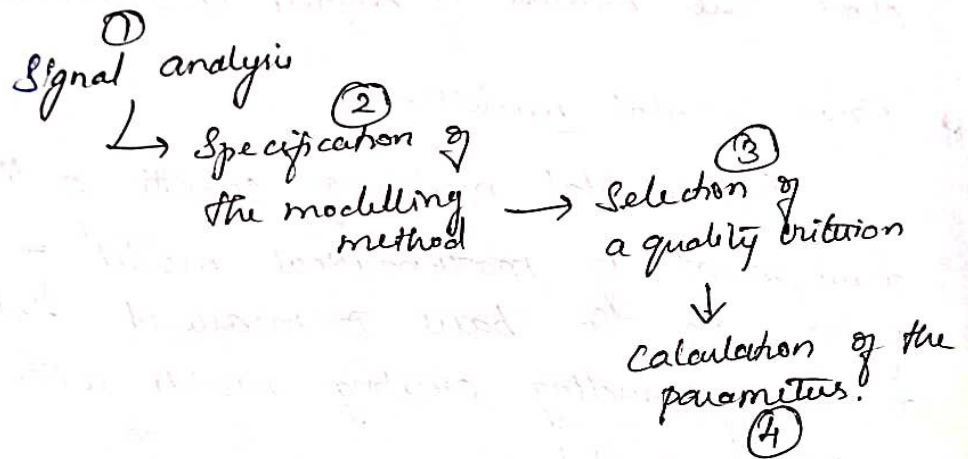 ①
Signal analysis
②
↳ Specification of
the modelling
method
→
③
Selection of
a quality criterion
↓
Calculation of the
parameters.
④